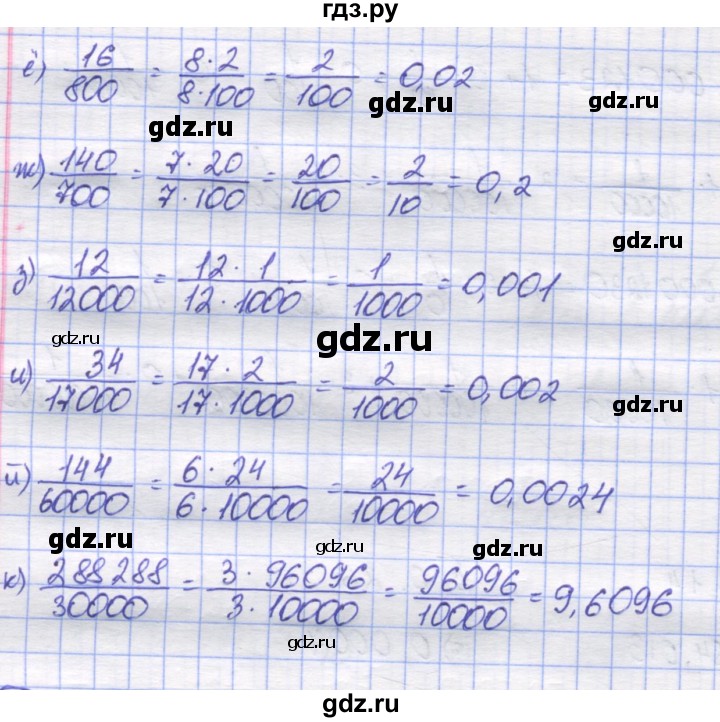 гдз.ру
ё) 16/800 = 8·2/8·100 = 2/100 = 0,02
gdz.ru
gdz.ru
ж) 140/700 = 7·20/7·100 = 20/100 = 2/10 = 0,2
gdz.ru
з) 12/12000 = 12·1/12·1000 = 1/1000 = 0,001
gdz.ru
gdz.ru
и) 34/17000 = 17·2/17·1000 = 2/1000 = 0,002
gdz.ru
й) 144/60000 = 6·24/6·10000 = 24/10000 = 0,0024
gdz.ru
gdz.ru
gdz.ru
к) 288288/30000 = 3·96096/3·10000 = 96096/10000 = 9,6096
gdz.ru
gdz.ru
gdz.ru